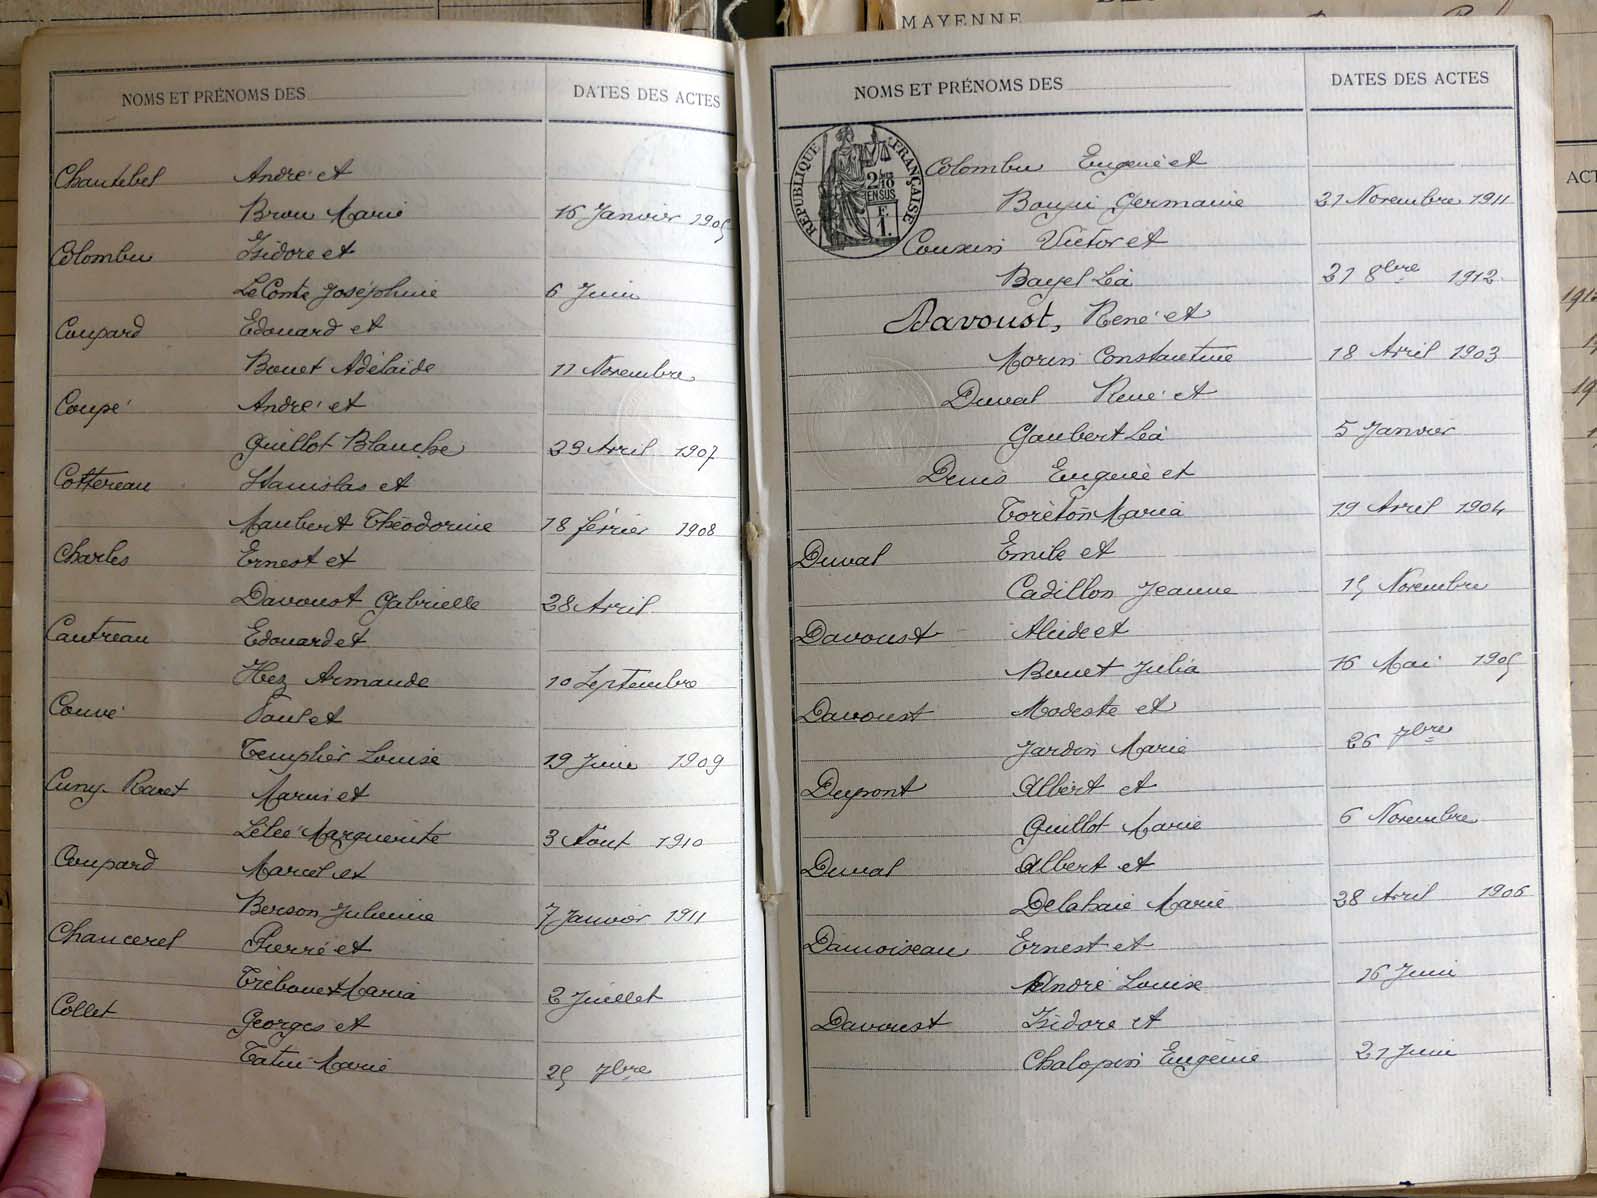 MAYENNE
NOMS ET PRÉNOMS DES DATES DES ACTES
Chantebel André et
Brou Marie 16 Janvier 1905
Colombu Isidore et
LeComte Joséphine 6 Juin
Coupard Edouard et
Bouet Adélaïde 11 Novembre
Coupé André et
Guillot Blanche 23 Avril 1907
Cottereau Stanislas et
Maubert Théodorine 18 février 1908
Charles Ernest et
Davoust Gabrielle 28 Avril
Cautreau Edouard et
Hez Armande 10 Septembre
Couvé Paul et
Templier Louise 19 Juin 1909
Cuny-Raset Marius et
Lelee Marguerite 3 Août 1910
Coupard Marcel et
Berson Julienne 7 Janvier 1911
Chancerel Pierre et
Trébouet Maria 2 Juillet
Collet Georges et
Tatin Marie 25 7bre
NOMS ET PRÉNOMS DES DATES DES ACTES
RÉPUBLIQUE FRANÇAISE
2/10
EN SUS
F.
1.
Colombu Eugène et
Germaine 21 Novembre 1911
Cousin Victor et
Bayel Léa 21 8bre 1912
Davoust, René et
Morin Constantine 18 Avril 1903
Duval René et
Gaubert Léa 5 Janvier
Denis Eugène et
Toréton Maria 19 Avril 1904
Duval Emile et
Cadillon Jeanne 15 Novembre
Davoust Alcide et
Bouet Julia 16 Mai 1905
Davoust Modeste et
Jardin Marie 26 7bre
Dupont Albert et
Guillot Marie 6 Novembre
Duval Albert et
Delahaie Marie 28 Avril 1906
Damoiseau Ernest et
André Louise 16 Juin
Davoust Isidore et
Chalopin Eugénie 21 Juin